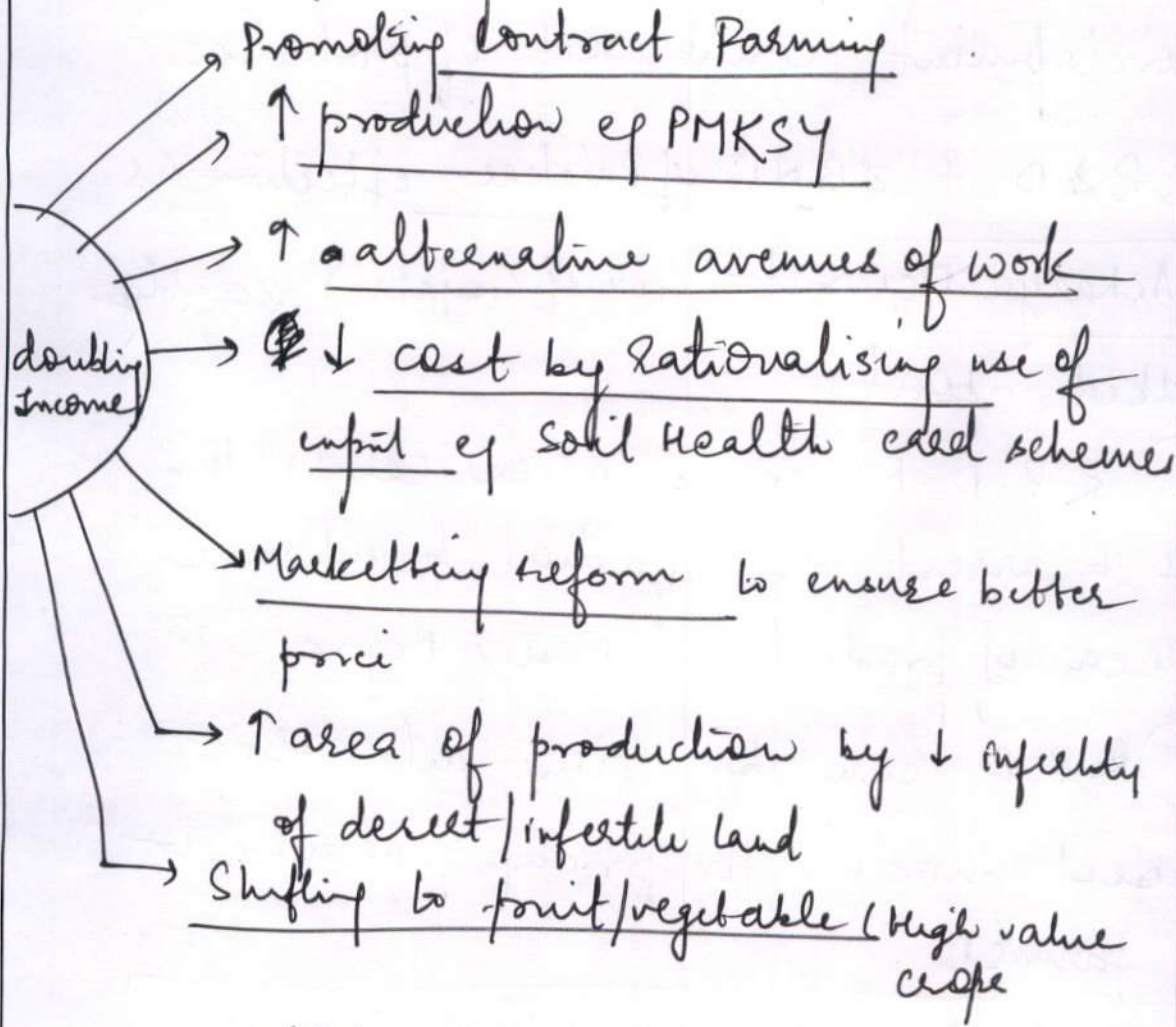 Promoting Contract Farming
↑ production eg PMKSY
↑ alternative avenues of work
doubling
Income
↓ cost by rationalising use of
input eg Soil Health card schemes
Marketting reform to ensure better
price
↑ area of production by ↓ infertility
of desert/infertile land
Shifting to fruit/vegetable (High value
crops